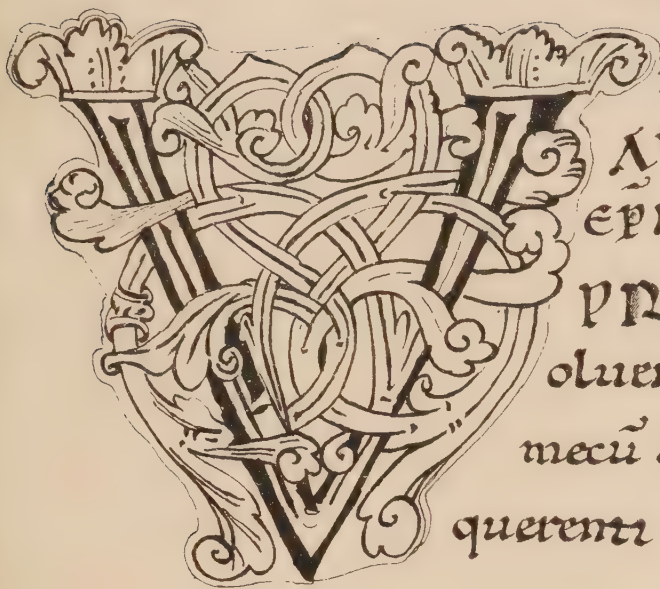 V
EP̄I
PR
oluer
mecū
querenti